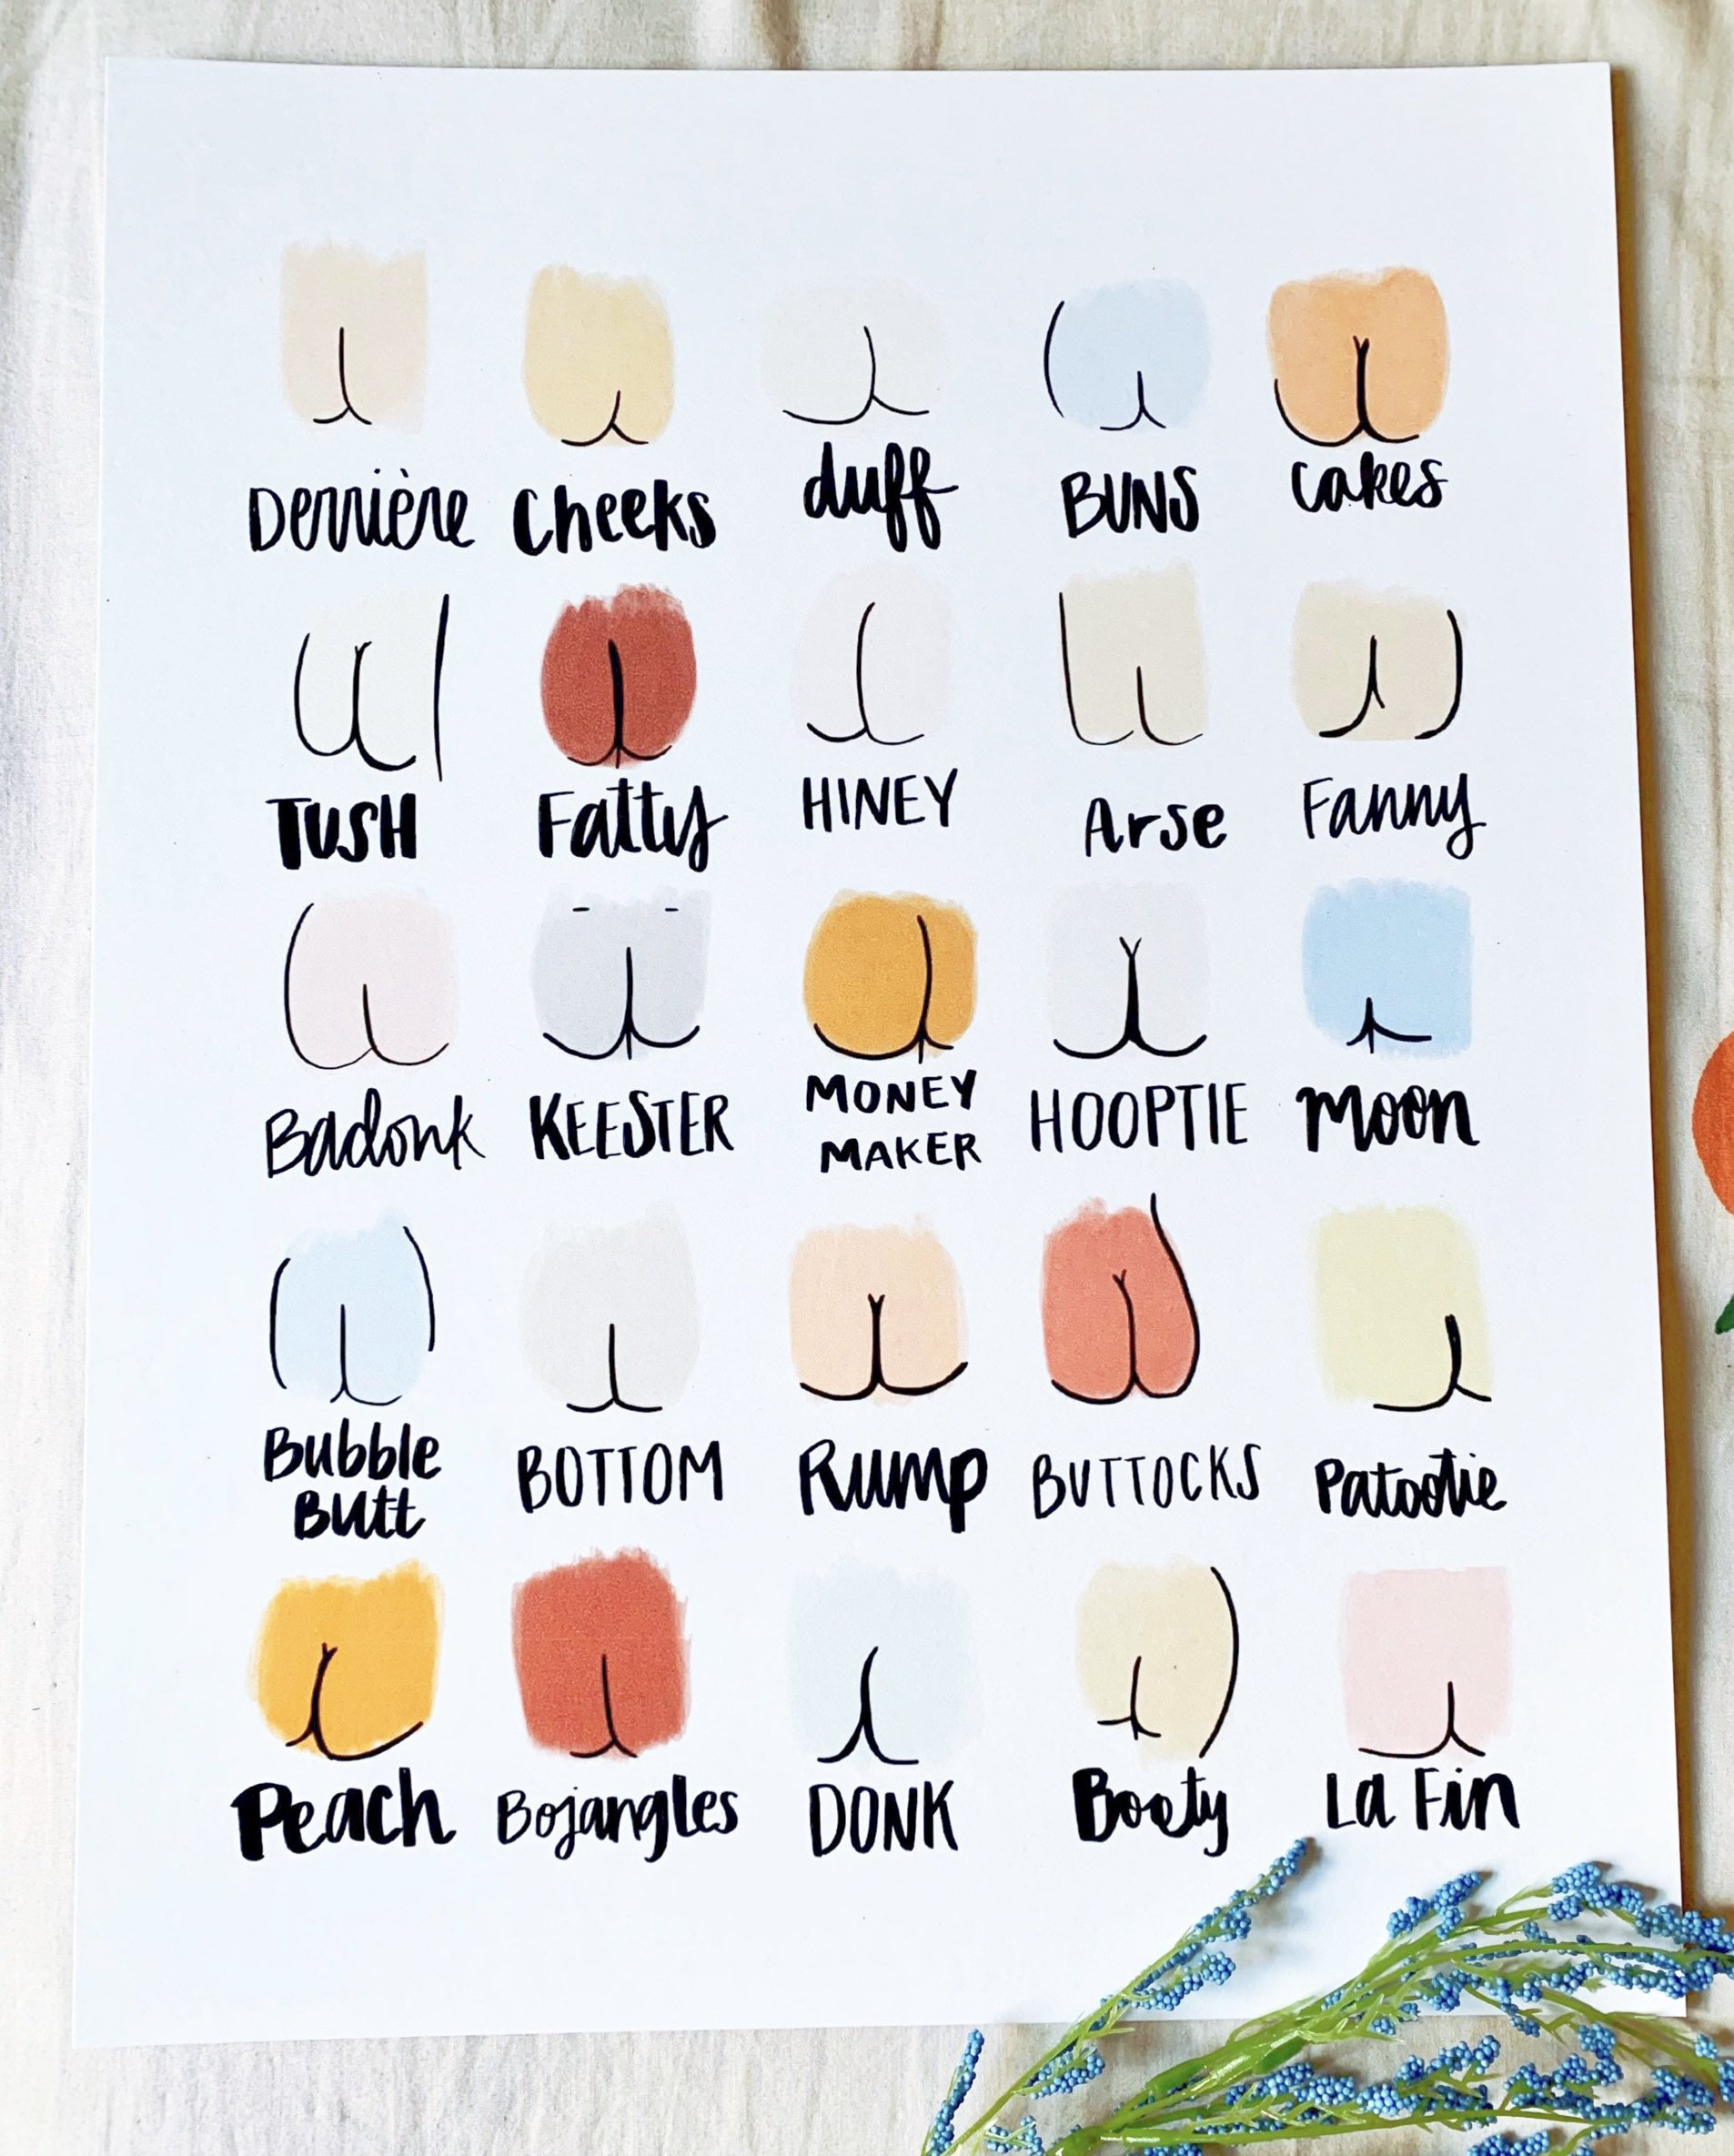 Derrière
Cheeks
duff
BUNS
cakes
TUSH
Fatty
HINEY
Arse
Fanny
Badonk
KEESTER
MONEY
MAKER
HOOPTIE
Moon
Bubble
Butt
BOTTOM
Rump
BUTTOCKS
Patootie
Peach
Bojangles
DONK
Booty
La Fin